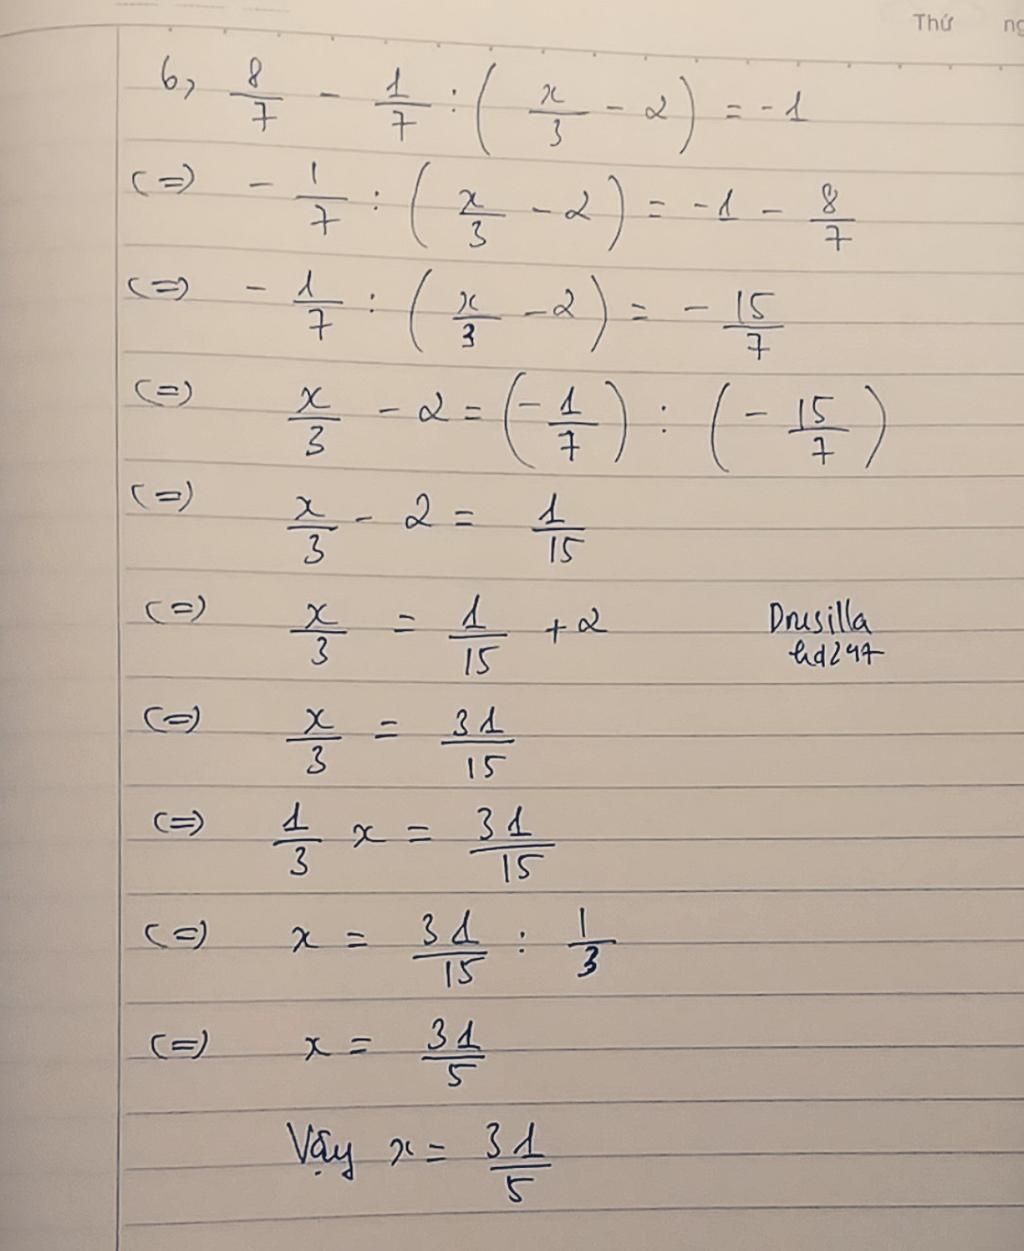 Thứ ng
6, 8/7 - 1/7 : (x/3 - 2) = -1
(=) - 1/7 : (x/3 - 2) = -1 - 8/7
(=) - 1/7 : (x/3 - 2) = - 15/7
(=) x/3 - 2 = (- 1/7) : (- 15/7)
(=) x/3 - 2 = 1/15
(=) x/3 = 1/15 + 2
Drusilla
hd247
(=) x/3 = 31/15
(=) 1/3 x = 31/15
(=) x = 31/15 : 1/3
(=) x = 31/5
Vậy x = 31/5